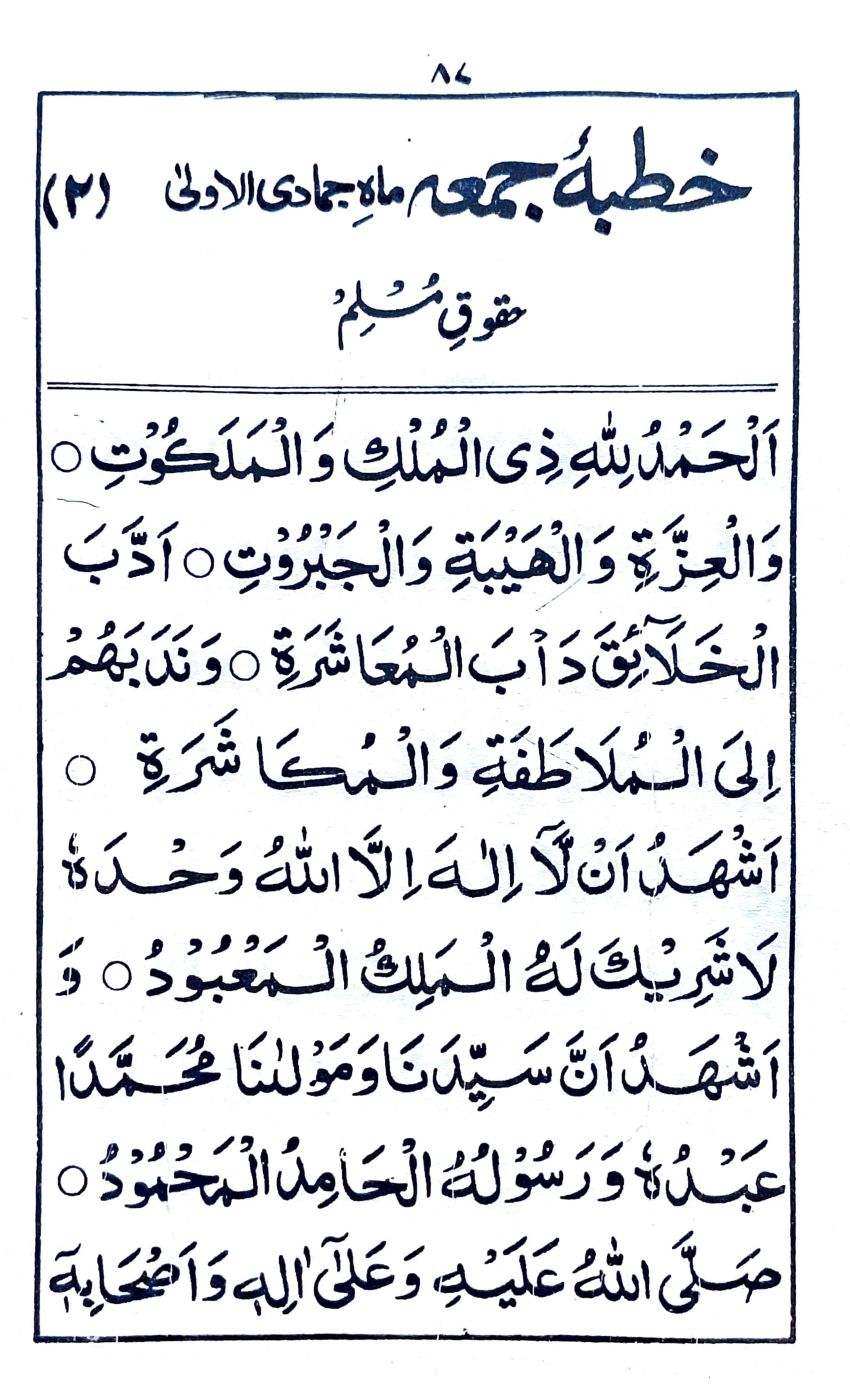 ۸۷
خطبۂ جمعہ ماہِ جمادی الاولیٰ (۲)
حقوقِ مُسْلِمْ
اَلْحَمْدُ لِلّٰهِ ذِی الْمُلْكِ وَ الْمَلَكُوْتِ ○
وَالْعِزَّةِ وَالْهَيْبَةِ وَالْجَبْرُوْتِ ○ اَدَّبَ
الْخَلَآئِقَ دَاْبَ الْمُعَاشَرَةِ ○ وَنَدَبَهُمْ
اِلَى الْمُلَاطَفَةِ وَالْمُكَاشَرَةِ ○
اَشْهَدُ اَنْ لَّآ اِلٰهَ اِلَّا اللهُ وَحْدَهٗ
لَا شَرِيْكَ لَهُ الْمَلِكُ الْمَعْبُوْدُ ○ وَ
اَشْهَدُ اَنَّ سَيِّدَنَا وَمَوْلٰنَا مُحَمَّدًا
عَبْدُهٗ وَرَسُوْلُهُ الْحَامِدُ الْمَحْمُوْدُ ○
صَلَّى اللهُ عَلَيْهِ وَعَلٰٓى اٰلِهٖ وَاَصْحَابِهٖ